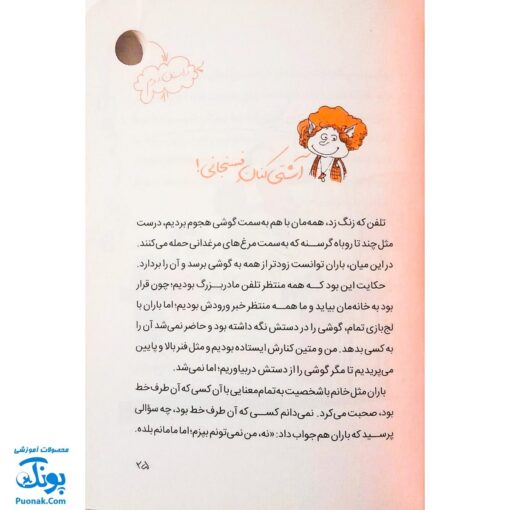 آشتی‌کنان فسنجانی!
تلفن که زنگ زد، همه‌مان با هم به‌سمت گوشی هجوم بردیم، درست
مثل چند تا روباه گرسنه که به‌سمت مرغ‌های مرغدانی حمله می‌کنند.
در این میان، باران توانست زودتر از همه به گوشی برسد و آن را بردارد.
حکایت این بود که همه منتظر تلفن مادربزرگ بودیم؛ چون قرار
بود به خانه‌مان بیاید و ما همه منتظر خبر ورودش بودیم؛ اما باران با
لج‌بازی تمام، گوشی را در دستش نگه داشته بود و حاضر نمی‌شد آن را
به کسی بدهد. من و متین کنارش ایستاده بودیم و مثل فنر بالا و پایین
می‌پریدیم تا مگر گوشی را از دستش دربیاوریم؛ اما نمی‌شد.
باران مثل خانم باشخصیت به‌تمام‌معنایی با آن کسی که آن طرف خط
بود، صحبت می‌کرد. نمی‌دانم کسی که آن طرف خط بود، چه سؤالی
پرسید که باران هم جواب داد: «نه، من نمی‌تونم بپزم؛ اما مامانم بلده.
۲۵
محصولات آموزشی
پونک
Puonak.Com